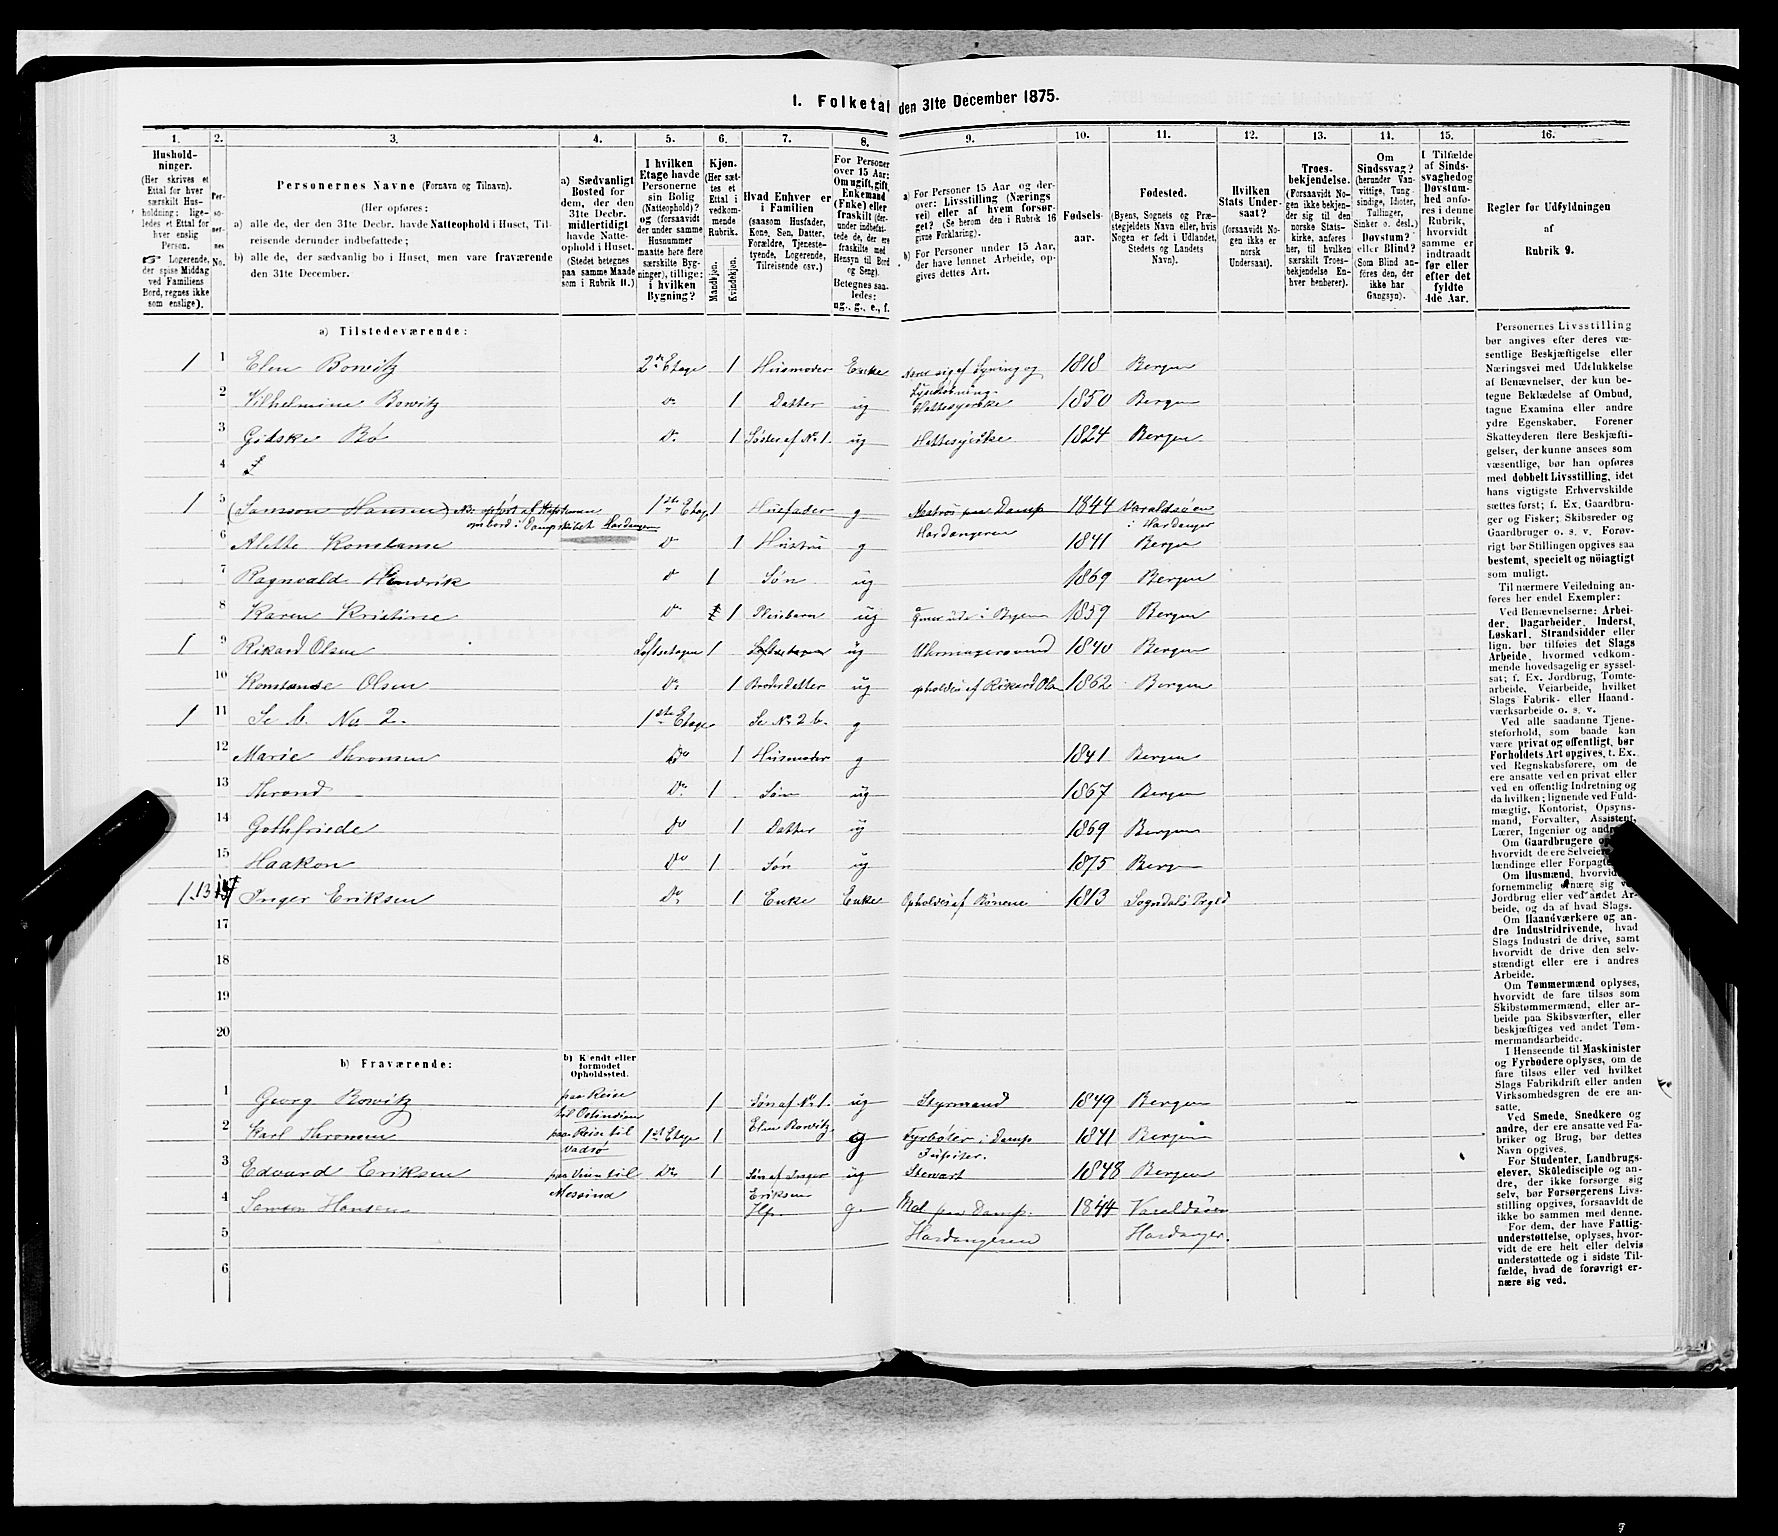 1. Folketal den 31te December 1875.
1. 2. 3. 4. 5. 6. 7. 8. 9. 10. 11. 12. 13. 14. 15. 16.
Hushold-
ninger.
(Her skrives et
Ettal for hver
særskilt Hus-
holdning; lige-
ledes et Ettal for
hver enslig
Person.
☞ Logerende,
der spise Middag
ved Familiens
Bord, regnes ikke
som enslige).
Per-
so-
ner-
nes
No.
Personernes Navne (Fornavn og Tilnavn).
(Her opføres:
a) alle de, der den 31te Decbr. havde Natteophold i Huset, Til-
reisende derunder indbefattede;
b) alle de, der sædvanlig bo i Huset, men vare fraværende
den 31te December.
a) Sædvanligt
Bosted for
dem, der den
31te Decbr.
midlertidigt
havde Natte-
ophold i Huset.
(Stedet betegnes
paa samme Maade
som i Rubrik 11.)
I hvilken
Etage havde
Personerne
sin Bolig
(Natteophold)?
og (forsaavidt
der under samme
Husnummer
maatte høre flere
særskilte Byg-
ninger), tillige:
i hvilken
Bygning?
Kjøn.
(Her sæt-
tes et
Ettal i
vedkom-
mende
Rubrik.
Mandkjøn.
Kvindekjøn.
Hvad Enhver er
i Familien
(saasom Husfader,
Kone, Søn, Datter,
Forældre, Tjeneste-
tyende, Logerende,
Tilreisende osv.)
For Personer
over 15 Aar:
Om ugift, gift,
Enkemand
(Enke) eller
fraskilt (der-
under indbefat-
tede de, der ere
fraskilte med
Hensyn til Bord
og Seng).
Betegnes saa-
ledes:
ug., g., e., f.
a) For Personer 15 Aar og der-
over: Livsstilling (Nærings
vei) eller af hvem forsør-
get? (Se herom den i Rubrik 16
givne Forklaring).
b) For Personer under 15 Aar,
der have lønnet Arbeide, op-
gives dettes Art.
Fødsels-
aar.
Fødested.
(Byens, Sognets og Præ-
stegjeldets Navn, eller, hvis
Nogen er født i Udlandet,
Stedets og Landets
Navn).
Hvilken
Stats Under-
saat?
(forsaavidt No-
gen ikke er
norsk
Undersaat).
Troes-
bekjendelse.
(Forsaavidt No-
gen ikke bekjen-
der sig til den
norske Stats-
kirke, anføres
her, til hvilken
særskilt Troes-
bekjendelse En-
hver henhører).
Om
Sindssvag?
(herunder Van-
vittige, Tung-
sindige, Idioter,
Tullinger,
Sinker o. desl.)
Døvstum?
eller Blind?
(Som Blind an-
føres den, der
ikke har
Gangsyn).
I Tilfælde
af Sinds-
svaghed og
Døvstum-
hed anfø-
res i denne
Rubrik,
hvorvidt
samme er
indtraadt
før eller
efter det
fyldte
4de Aar.
Regler før Udfyldningen
af
Rubrik 9.
a) Tilstedeværende:
1 1 Elen Bowitz 2den Etage 1 Husmoder Enke Nærer sig af Syning og 1818 Bergen
2 Vilhelmine Bowitz Do 1 Datter ug Hattesyerske 1850 Bergen
3 Gidske Bø Do 1 Søster af No 1. ug Hattesyerske 1824 Bergen
4
1 5 (Samson Hansen) 1ste Etage 1 Husfader g Matros paa Damp 1844 Varaldsøen
ombord i Dampskibet Hardangeren Hardangeren i Hardanger
6 Alette Konstanse Do 1 Hustru g 1841 Bergen
7 Ragnvald Hendrik Do 1 Søn ug 1869 Bergen
8 Karen Kristine Do 1 Pleiebarn ug 1859 Bergen
1 9 Rikard Olsen Loftsetagen 1 ug Uhrmagersvend 1840 Bergen
10 Konstanse Olsen Do 1 Broderdatter ug opholdes af Rikard Olsen 1862 Bergen
1 11 Se b. No 2. 1ste Etage Se No 2 b. g
12 Marie Thronsen Do 1 Husmoder g 1841 Bergen
13 Thrond Do 1 Søn ug 1867 Bergen
14 Gothfriede Do 1 Datter ug 1869 Bergen
15 Haakon Do 1 Søn ug 1875 Bergen
1 Inger Eriksen Do 1 Enke Enke Opholdes af Bønene 1813 Sogndals Prgld
17
18
19
20
b) Fraværende:
b) Kjendt eller
formodet
Opholdssted.
1 Georg Bowitz paa Reise til Ostindien 1 Søn af No 1. Elen Bowitz ug Styrmand 1849 Bergen
2 Karl Thronsen paa Reise til Vadsø 1ste Etage 1 g Fyrbøter i Damp Jupiter. 1841 Bergen
3 Edvard Eriksen til Messina Do 1 Søn af Inger Eriksen ug Stewart 1848 Bergen
4 Samson Hansen Hf. g. Mat paa Damp. 1844 Varaldsøen
5 Hardangeren Hardanger.
6
Personernes Livsstilling
bør angives efter deres væ-
sentlige Beskjæftigelse eller
Næringsvei med Udelukkelse
af Benævnelser, der kun be-
tegne Beklædelse af Ombud,
tagne Examina eller andre
ydre Egenskaber. Forener
Skatteyderen flere Beskjæfti-
gelser, der kunne ansees som
væsentlige, bør han opføres
med dobbelt Livsstilling, idet
hans vigtigste Erhvervskilde
sættes først; f. Ex. Gaardbru-
ger og Fisker; Skibsreder og
Gaardbruger o. s. v. Forøv-
rigt bør Stillingen opgives saa
bestemt, specielt og nöiagtigt
som muligt.
Til nærmere Veiledning an-
føres her endel Exempler:
Ved Benævnelserne: Arbei-
der, Dagarbeider, Inderst,
Løskarl, Strandsidder eller
lign. bør tilføies det Slags
Arbeide, hvormed vedkom-
mende hovedsagelig er syssel-
sat; f. Ex. Jordbrug, Tomte-
arbeide, Veiarbeide, hvilket
Slags Fabrik- eller Haand-
værksarbeide o. s. v.
Ved alle saadanne Tjene-
steforhold, som baade kan
være privat og offentligt, bør
Forholdets Art opgives, t. Ex.
ved Regnskabsførere, om de
ere ansatte ved en privat eller
ved en offentlig Indretning og
da hvilken; lignende ved Fuld-
mægtig, Kontorist, Opsyns-
mand, Forvalter, Assistent,
Lærer, Ingeniør og andre.
Om Gaardbrugere
hvorvidt de ere Selveiere,
lændinge eller Forpagtere.
Om Husmænd, hvorvidt
fornemmelig ernære sig ved
Jordbrug eller ved andet Ar-
beide, og da af hvad Slags.
Om Haandværkere og an-
dre Industridrivende, hvad
Slags Industri de drive, samt
hvorvidt de drive den selv-
stændigt eller ere i andres
Arbeide.
Om Tømmermænd oplyses,
hvorvidt de fare tilsøs som
Skibstømmermænd, eller ar-
beide paa Skibsværfter, eller
beskjæftiges ved andet Tøm-
mermandsarbeide.
I Henseende til Maskinister
og Fyrbødere oplyses, om de
fare tilsøs eller ved hvilket
Slags Fabrikdrift eller anden
Virksomhedsgren de ere an-
satte.
Ved Smede, Snedkere og
andre, der ere ansatte ved Fa-
briker og Brug, bør dettes
Navn opgives.
For Studenter, Landbrugs-
elever, Skoledisciple og an-
dre, der ikke forsørge sig
selv, bør Forsørgerens Livs-
stilling opgives, forsaavidt de
ikke bo sammen med denne.
For dem, der have Fattig-
understøttelse, oplyses, hvor-
vidt de ere helt eller delvis
understøttede og i sidste Til-
fælde, hvad de forøvrigt er-
nære sig ved.